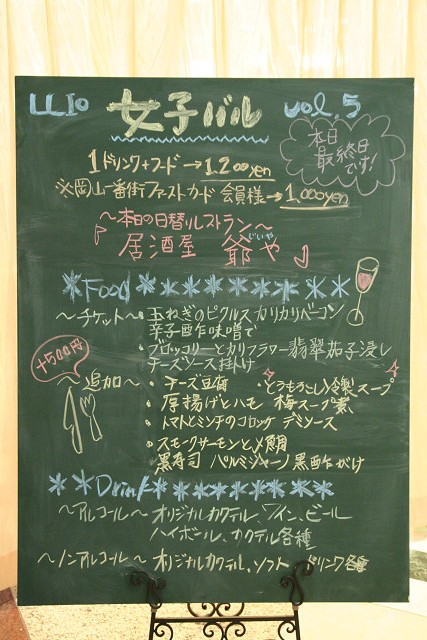 LLIO 女子バル vol.5
本日
最終日
です!
1ドリンク+フード→1,200yen
※岡山一番街ファストカード会員様→1,000yen
～本日の日替りレストラン～
居酒屋 爺や
じいや
*Food*********
～チケット～・玉ねぎのピクルスカリカリベーコン
辛子酢味噌で
・ブロッコリーとカリフラワー翡翠茄子浸し
チーズソース掛け
+500円
～追加～・チーズ豆腐 ・とうもろこし冷製スープ
・厚揚げとハモ 梅スープ煮
・トマトとミンチのコロッケ デミソース
・スモークサーモンと〆鯛
黒寿司 パルミジャーノ黒酢がけ
**Drink*********
～アルコール～ オリジナルカクテル、ワイン、ビール
ハイボール、カクテル各種
～ノンアルコール～ オリジナルカクテル、ソフトドリンク各種